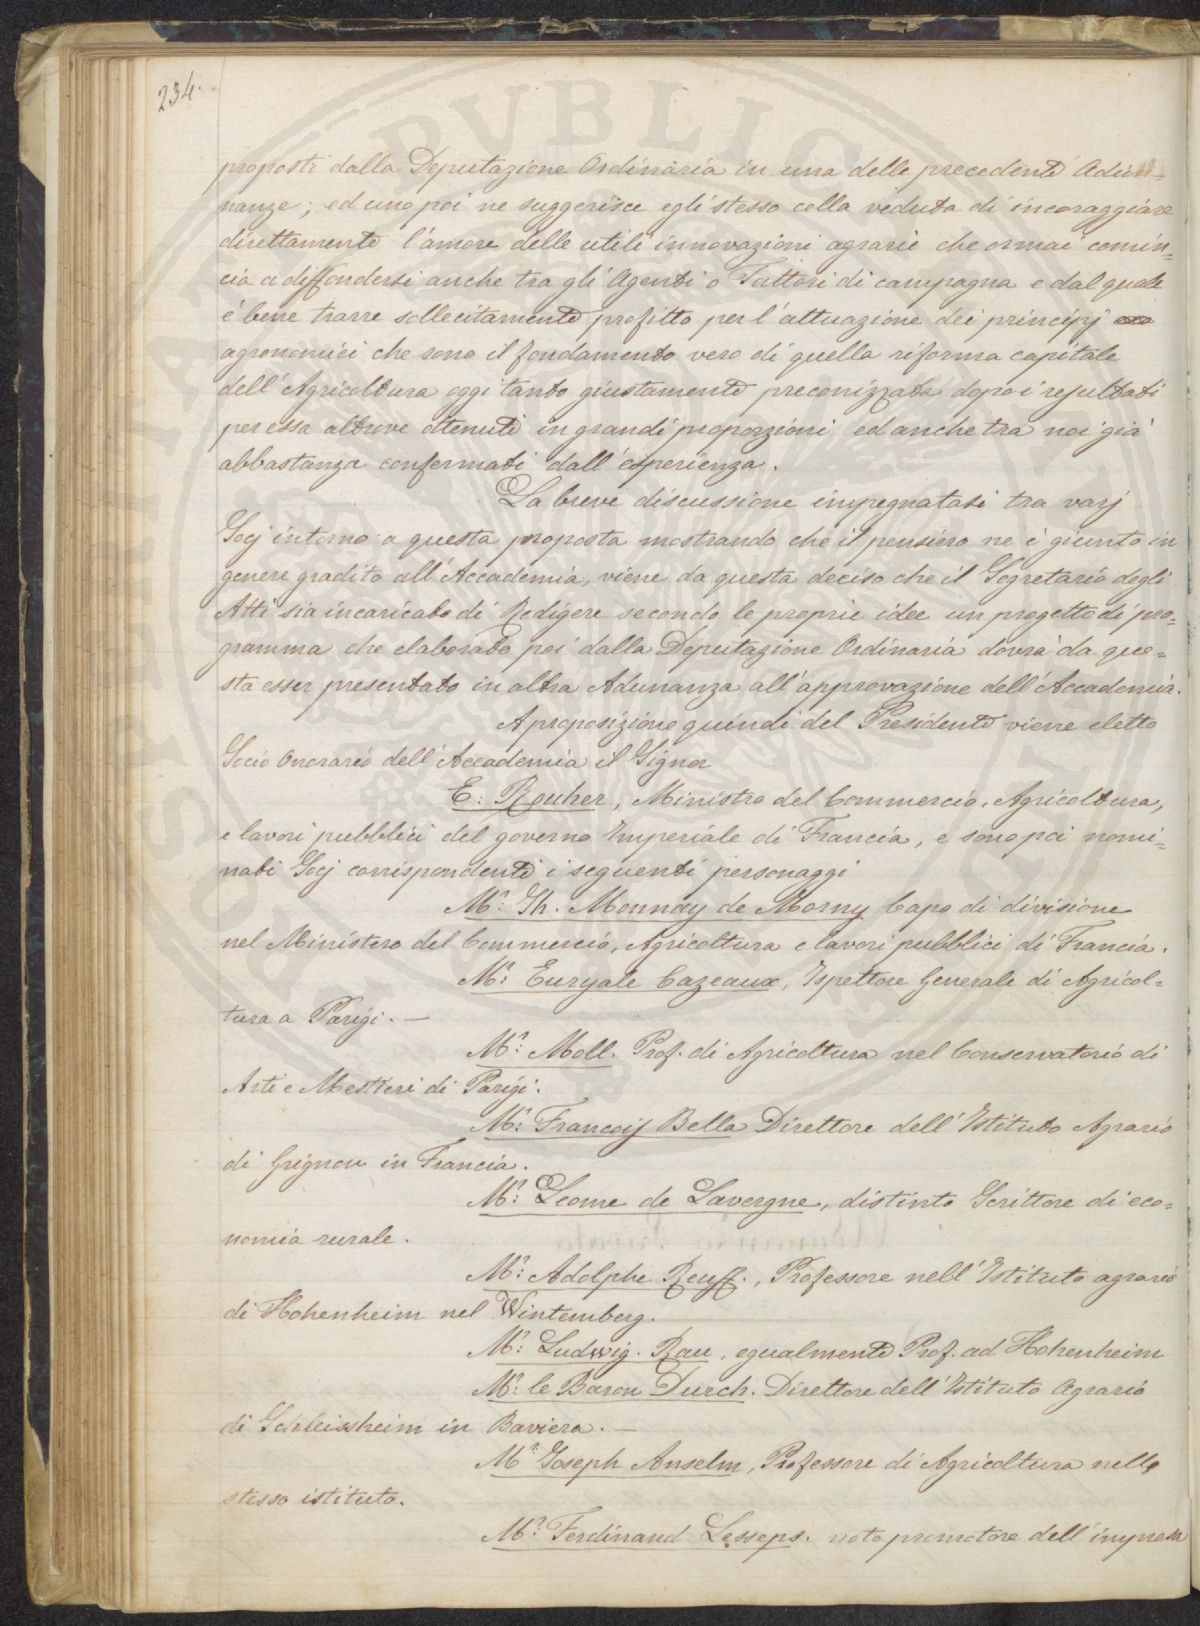 234.
proposti dalla Deputazione Ordinaria in una delle precedenti Adu-
nanze; ed uno poi ne suggerisce egli stesso colla veduta di incoraggiare
direttamente l'amore delle utili innovazioni agrarie che ormai comin=
cia a diffondersi anche tra gli Agenti o Fattori di campagna e dal quale
è bene trarre sollecitamente profitto per l'attuazione dei principj
agronomici che sono il fondamento vero di quella riforma capitale
dell'Agricoltura oggi tanto giustamente preconizzata dopo i resultati
per essa altrove ottenuti in grandi proporzioni ed anche tra noi già
abbastanza confermati dall'esperienza.
La breve discussione impegnatasi tra varj
Socj intorno a questa proposta mostrando che il pensiero ne è giunto in
genere gradito all'Accademia, viene da questa deciso che il Segretario degli
Atti sia incaricato di Redigere secondo le proprie idee un progetto di pro=
gramma che elaborato poi dalla Deputazione Ordinaria dovrà da que=
sta esser presentato in altra Adunanza all'approvazione dell'Accademia.
A proposizione quindi del Presidente viene eletto
Socio Onorario dell'Accademia il Signor
E: Rouher, Ministro del Commercio, Agricoltura,
e lavori pubblici del governo Imperiale di Francia, e sono poi nomi=
nati Socj corrispondenti i seguenti personaggi
Mr: Th. Monnay de Morny Capo di divisione
nel Ministero del Commercio, Agricoltura e lavori pubblici di Francia.
Mr: Euryale Cazeaux, Ispettore Generale di Agricol=
tura a Parigi. —
Mr: Moll. Prof. di Agricoltura nel Conservatorio di
Arti e Mestieri di Parigi.
Mr: Francois Bella Direttore dell'Istituto Agrario
di Grignon in Francia.
Mr: Leome de Lavergne, distinto Scrittore di eco=
nomia rurale.
Mr: Adolphe Reuff., Professore nell'Istituto agrario
di Hohenheim nel Wintemberg.
Mr: Ludwig. Rau, egualmente Prof. ad Hohenheim
Mr: le Baron Durch. Direttore dell'Istituto Agrario
di Schleissheim in Baviera. —
Mr: Joseph Anselm, Professore di Agricoltura nello
stesso istituto.
Mr: Ferdinand Lesseps. noto promotore dell'impresa